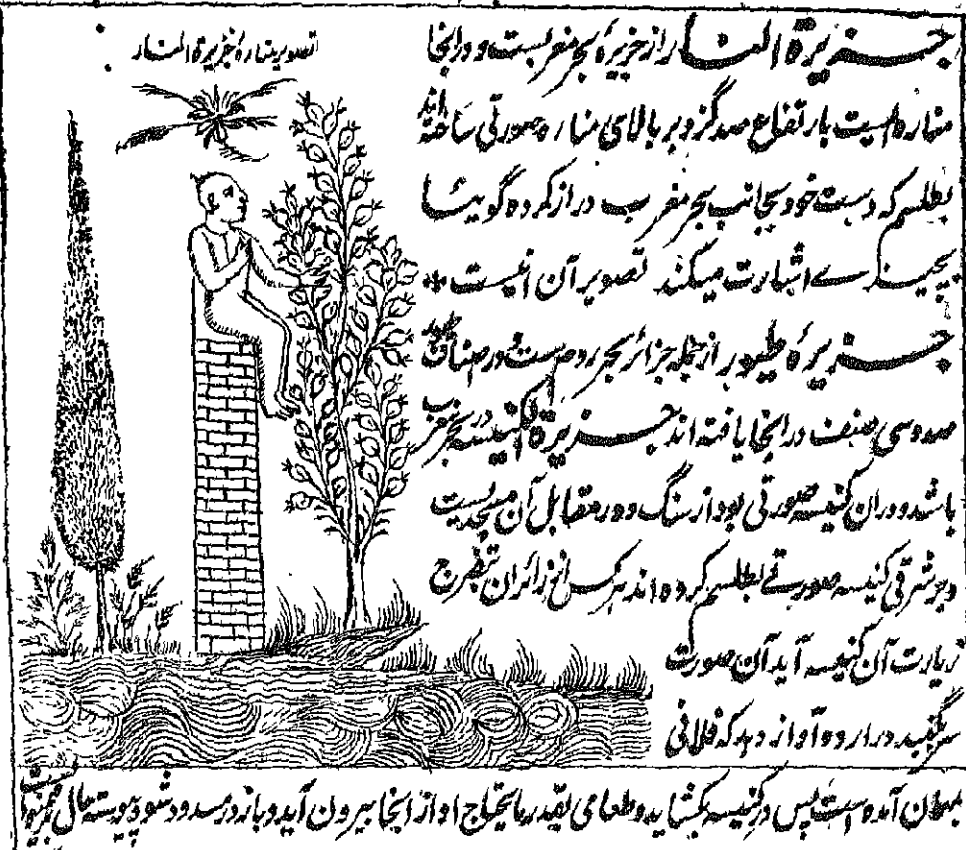 تصویر مناره جزیرة المنار
جزیرة المنار از جزیرهٔ بحر مغربست و در انجا
مناره ایست بارتفاع صد گز و بر بالای مناره صورتی ساخته اند
بطلسم که دست خود بجانب بحر مغرب دراز کرده گوئیا
بچیزے اشارت میکند تصویر آن اینست
جزیرهٔ طیور از جمله جزائر بحر روم است و در اصناف طیور
صد و سی صنف در انجا یافته اند جزیرة الکنیسه در بحر مغرب
باشد و دران کنیسه صورتی بود از سنگ و در مقابل آن مسجدیست
و بر شرقی کنیسه صورتے بطلسم کرده اند هر کس از زائران بتفرج
زیارت آن کنیسه آید آن صورت
سر گنبد درارد و آواز دهد که فلانی
مهمان آمده است پس در کنیسه بکشاید و طعامی بقدر مایحتاج او از انجا بیرون آید و باز در مسدود شود پیوسته حال